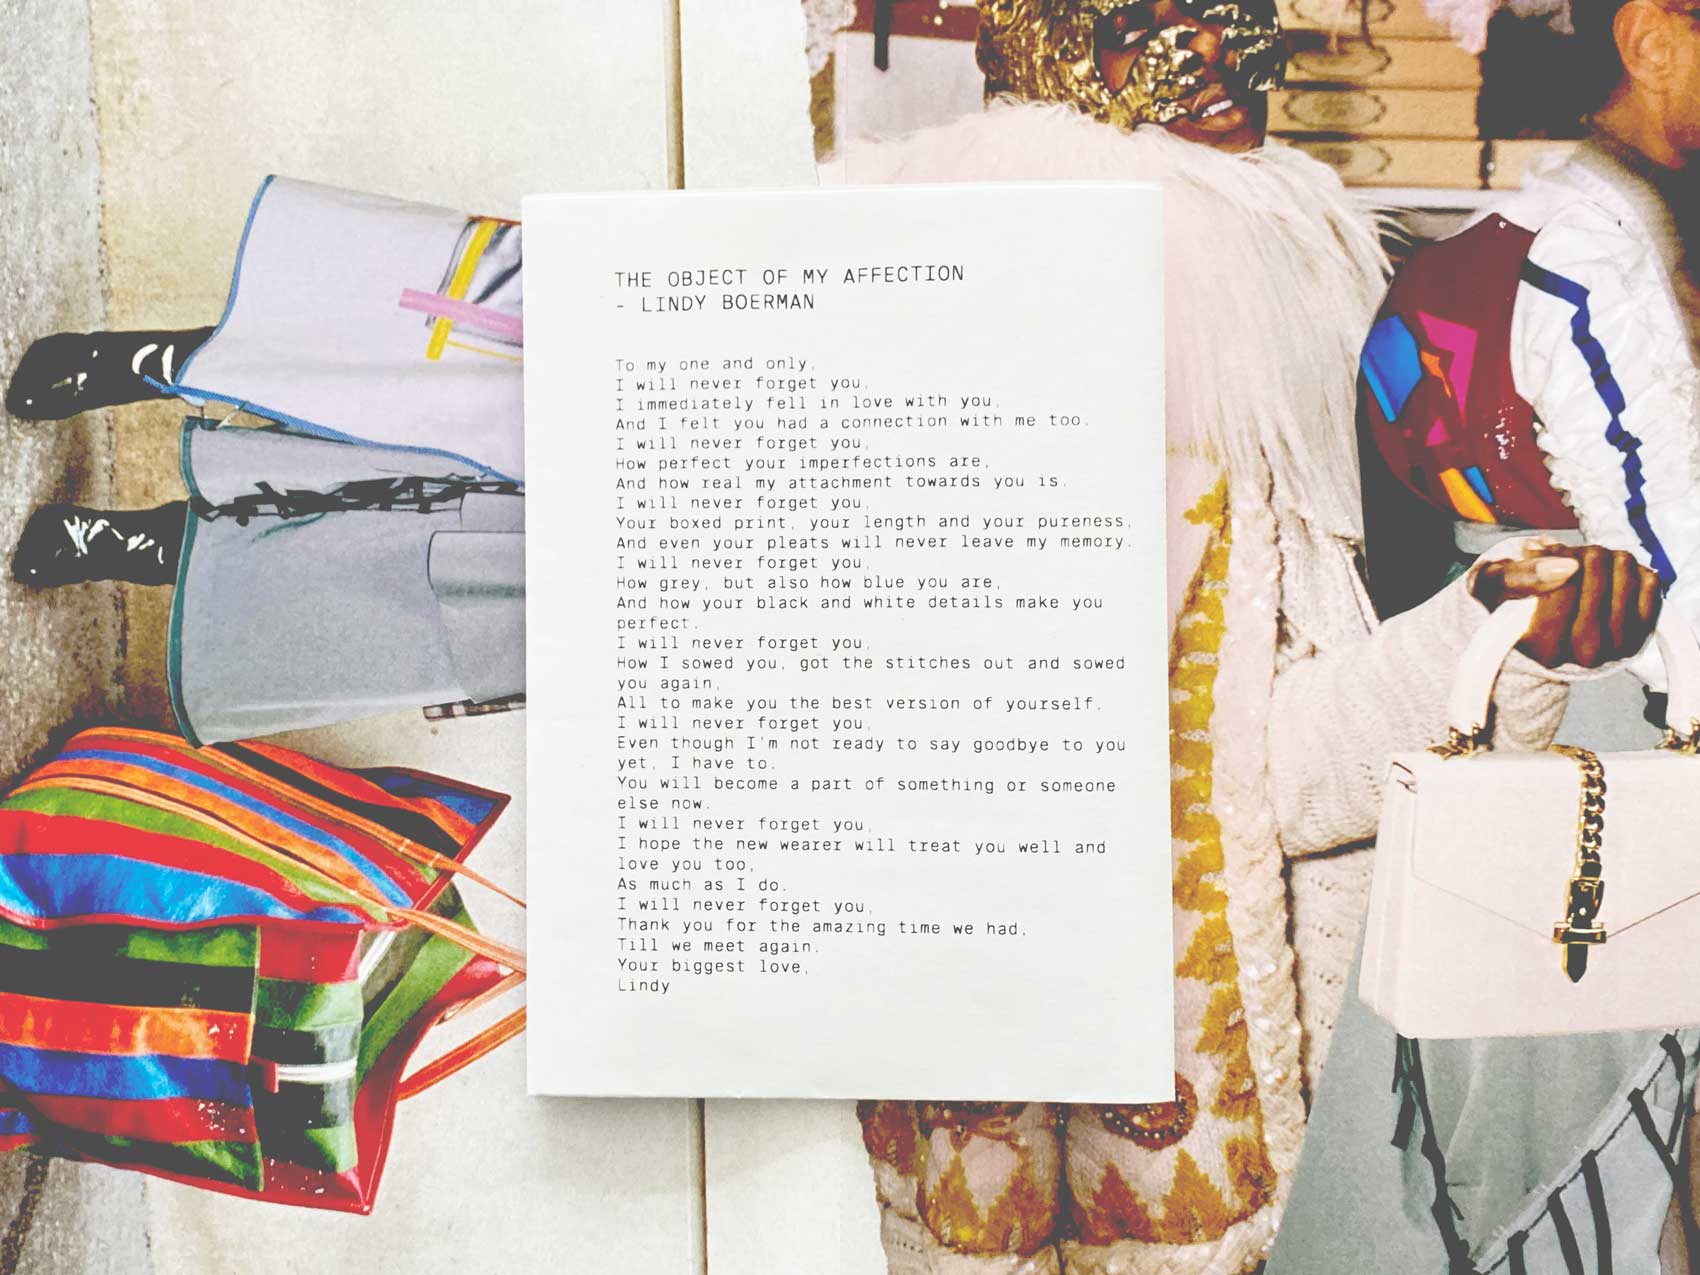 THE OBJECT OF MY AFFECTION
- LINDY BOERMAN
To my one and only,
I will never forget you,
I immediately fell in love with you,
And I felt you had a connection with me too.
I will never forget you,
How perfect your imperfections are,
And how real my attachment towards you is.
I will never forget you,
Your boxed print, your length and your pureness,
And even your pleats will never leave my memory.
I will never forget you,
How grey, but also how blue you are,
And how your black and white details make you
perfect.
I will never forget you,
How I sowed you, got the stitches out and sowed
you again,
All to make you the best version of yourself.
I will never forget you,
Even though I'm not ready to say goodbye to you
yet, I have to.
You will become a part of something or someone
else now.
I will never forget you,
I hope the new wearer will treat you well and
love you too,
As much as I do.
I will never forget you,
Thank you for the amazing time we had,
Till we meet again.
Your biggest love,
Lindy